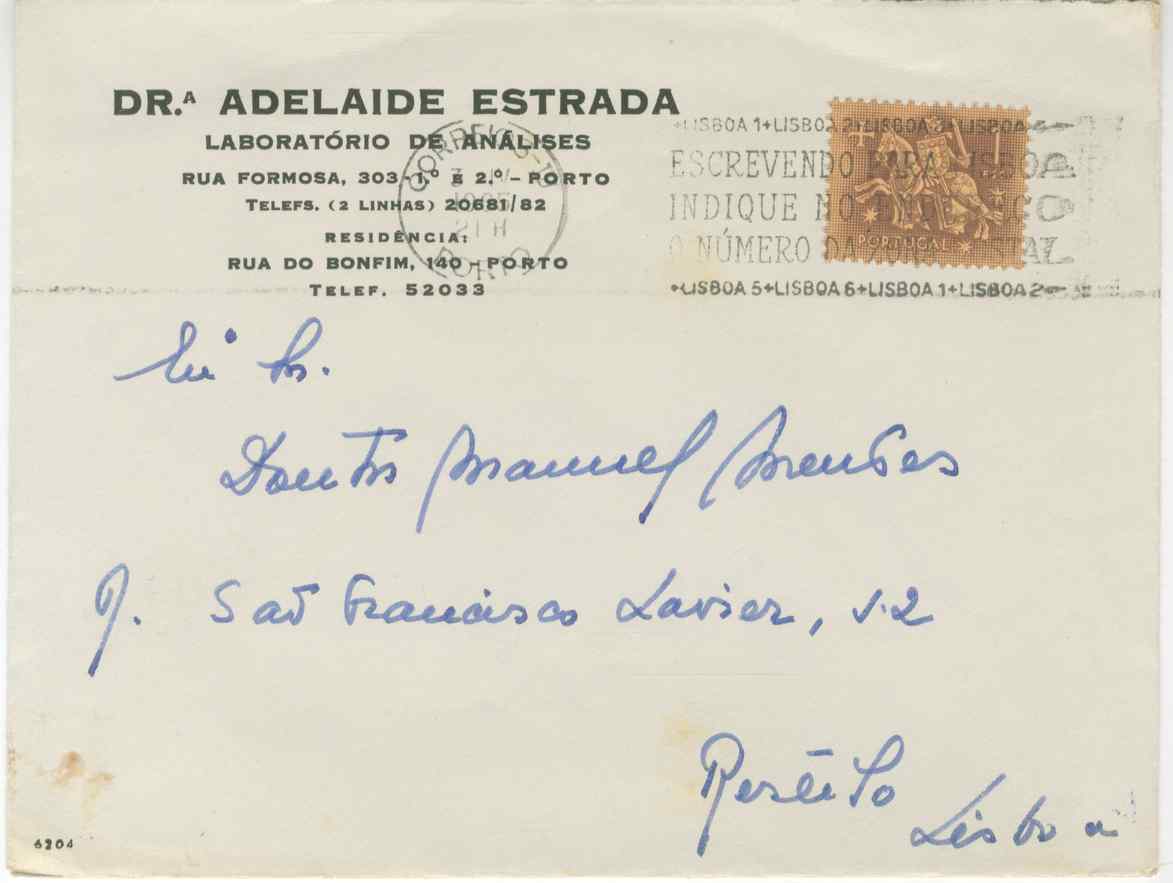 DR.ª ADELAIDE ESTRADA
LABORATÓRIO DE ANÁLISES
RUA FORMOSA, 303-1.º E 2.º - PORTO
TELEFS. (2 LINHAS) 20681/82
RESIDÊNCIA:
RUA DO BONFIM, 140 - PORTO
TELEF. 52033
CORREIOS
21 H
PORTO
+LISBOA 1+LISBOA 2+LISBOA 3+LISBOA
ESCREVENDO PARA LISBOA
INDIQUE NO
O NÚMERO DA ZONA POSTAL
+LISBOA 5+LISBOA 6+LISBOA 1+LISBOA 2
PORTUGAL
Sr.
Doutor Manuel Mendes
R. São Francisco Xavier,
Restelo
Lisboa
6204